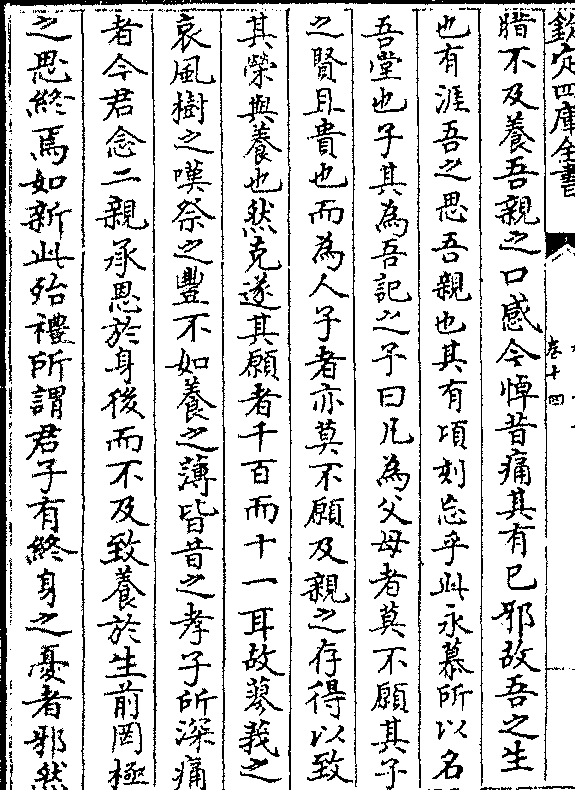 欽定四庫全書
卷十四
腊不及養吾親之口感今悼昔痛其有已邪故吾之生
也有涯吾之思吾親也其有頃刻忘乎此永慕所以名
吾堂也子其為吾記之予曰凡為父母者莫不願其子
之賢且貴也而為人子者亦莫不願及親之存得以致
其榮與養也然克遂其願者千百而十一耳故蓼莪之
哀風樹之嘆祭之豐不如養之薄皆昔之孝子所深痛
者今君念二親承恩於身後而不及致養於生前罔極
之思終焉如新此殆禮所謂君子有終身之憂者邪然